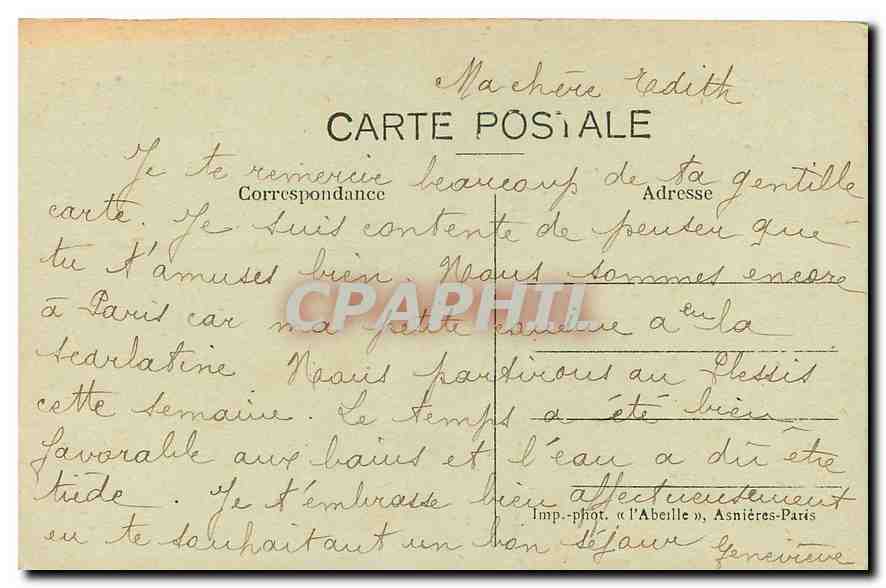 Ma chère Edith
CARTE POSTALE
Je te remercie beaucoup de ta gentille
Correspondance
Adresse
carte. Je suis contente de penser que
tu t'amuses bien. Nous sommes encore
CPAPHIL
à Paris car ma petite cousine a eu la
scarlatine Nous partirons au Plessis
cette semaine. Le temps a été bien
favorable aux bains et l'eau a dû être
tiède. Je t'embrasse bien affectueusement
Imp.-phot. « l'Abeille », Asnières-Paris
en te souhaitant un bon séjour Geneviève